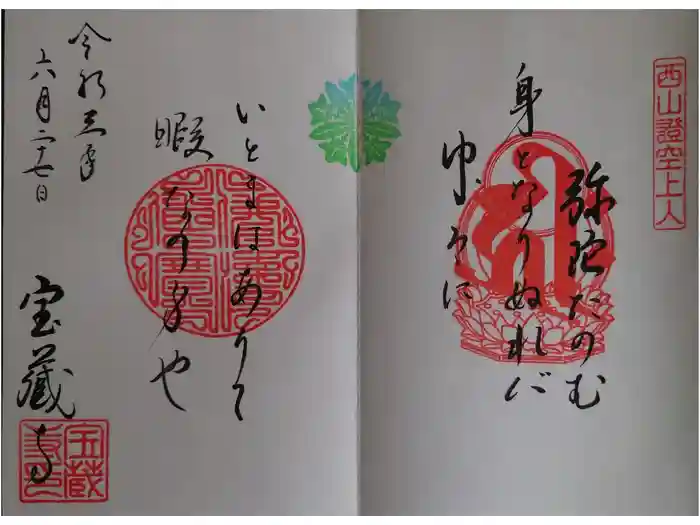 西山證空上人
弥陀たのむ
身となりぬれば
に
いとまはありて
暇な や
令和三年
六月二十七日
宝藏寺